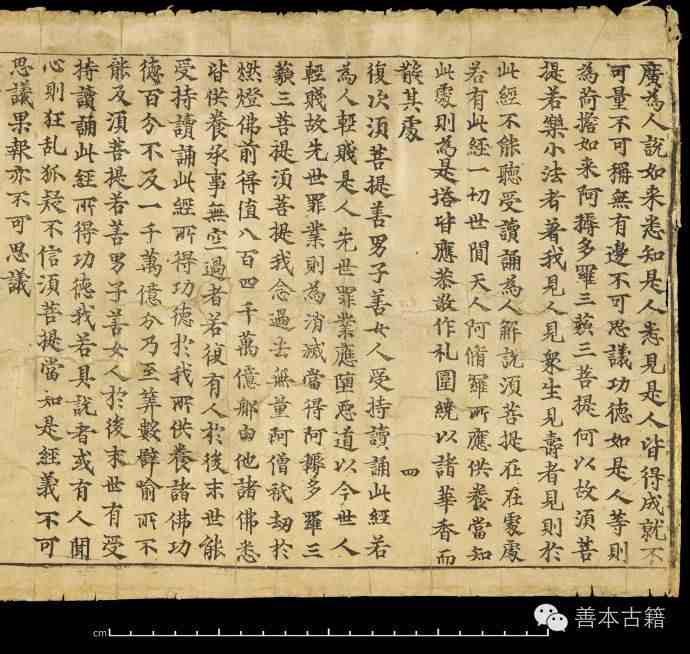 廣為人說如来悉知是人悉見是人皆得成就不
可量不可稱無有邊不可思議功德如是人等則
為荷擔如来阿耨多羅三藐三菩提何以故湏菩
提若樂小法者著我見人見衆生見壽者見則於
此經不能聽受讀誦為人解說湏菩提在在處處
若有此經一切世間天人阿脩羅所應供養當知
此處則為是塔皆應恭敬作礼圍繞以諸華香而
散其處
四
復次湏菩提善男子善女人受持讀誦此經若
為人輕賤是人先世罪業應墮惡道以今世人
輕賤故先世罪業則為消滅當得阿耨多羅三
藐三菩提湏菩提我念過去無量阿僧祇劫於
燃燈佛前得值八百四千萬億那由他諸佛悉
皆供養承事無空過者若復有人於後末世能
受持讀誦此經所得功德於我所供養諸佛功
德百分不及一千萬億分乃至筭數譬喻所不
能及湏菩提若善男子善女人於後末世有受
持讀誦此經所得功德我若具說者或有人聞
心則狂乱狐疑不信湏菩提當知是經義不可
思議果報亦不可思議
cm
善本古籍